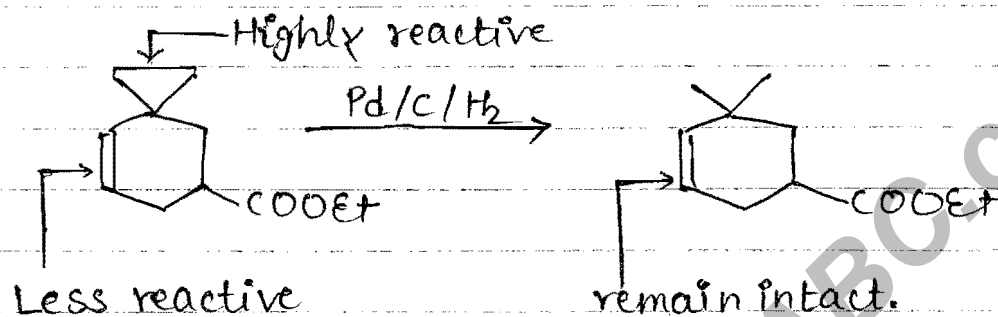 Highly reactive
Pd/C/H₂
COOEt
COOEt
Less reactive
remain intact.
ABC.c